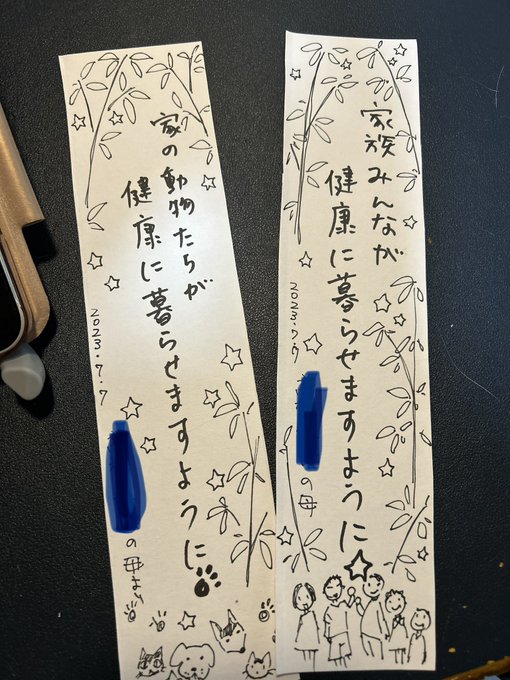 家族みんなが
健康に暮らせますように
2023.7.7
の母
家の動物たちが
健康に暮らせますように
2023.7.7
の母より